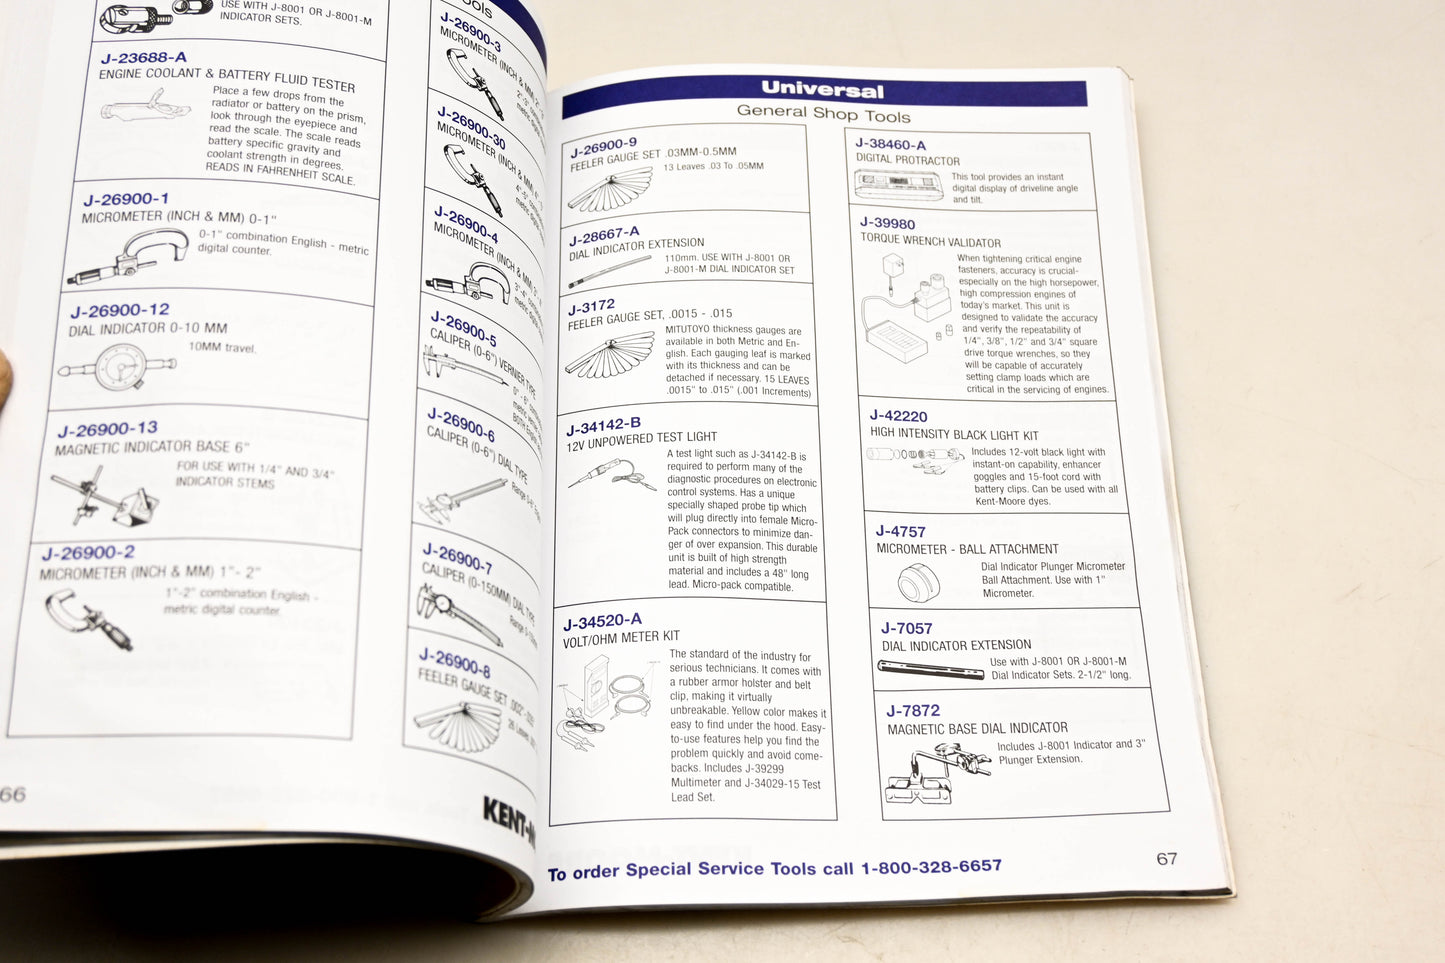 USE WITH J-8001 OR J-8001-M
INDICATOR SETS.
J-23688-A
ENGINE COOLANT & BATTERY FLUID TESTER
Place a few drops from the
radiator or battery on the prism,
look through the eyepiece and
read the scale. The scale reads
battery specific gravity and
coolant strength in degrees.
READS IN FAHRENHEIT SCALE.
J-26900-1
MICROMETER (INCH & MM) 0-1"
0-1" combination English - metric
digital counter.
J-26900-12
DIAL INDICATOR 0-10 MM
10MM travel.
J-26900-13
MAGNETIC INDICATOR BASE 6"
FOR USE WITH 1/4" AND 3/4"
INDICATOR STEMS
J-26900-2
MICROMETER (INCH & MM) 1"- 2"
1"-2" combination English -
metric digital counter.
66
J-26900-3
MICROMETER (INCH & MM)
2"-3"
metric digital
J-26900-30
MICROMETER (INCH & MM) 4"
4"-5"
metric digital
J-26900-4
MICROMETER (INCH & MM) 3"
3"-4"
metric digital
J-26900-5
CALIPER (0-6") VERNIER TYPE
J-26900-6
CALIPER (0-6") DIAL TYPE
Range
J-26900-7
CALIPER (0-150MM) DIAL TYPE
Range
J-26900-8
FEELER GAUGE SET
26 Leaves
KENT-M
Universal
General Shop Tools
J-26900-9
FEELER GAUGE SET .03MM-0.5MM
13 Leaves .03 To .05MM
J-28667-A
DIAL INDICATOR EXTENSION
110mm. USE WITH J-8001 OR
J-8001-M DIAL INDICATOR SET
J-3172
FEELER GAUGE SET, .0015 - .015
MITUTOYO thickness gauges are
available in both Metric and En-
glish. Each gauging leaf is marked
with its thickness and can be
detached if necessary. 15 LEAVES
.0015" to .015" (.001 Increments)
J-34142-B
12V UNPOWERED TEST LIGHT
A test light such as J-34142-B is
required to perform many of the
diagnostic procedures on electronic
control systems. Has a unique
specially shaped probe tip which
will plug directly into female Micro-
Pack connectors to minimize dan-
ger of over expansion. This durable
unit is built of high strength
material and includes a 48" long
lead. Micro-pack compatible.
J-34520-A
VOLT/OHM METER KIT
The standard of the industry for
serious technicians. It comes with
a rubber armor holster and belt
clip, making it virtually
unbreakable. Yellow color makes it
easy to find under the hood. Easy-
to-use features help you find the
problem quickly and avoid come-
backs. Includes J-39299
Multimeter and J-34029-15 Test
Lead Set.
J-38460-A
DIGITAL PROTRACTOR
This tool provides an instant
digital display of driveline angle
and tilt.
J-39980
TORQUE WRENCH VALIDATOR
When tightening critical engine
fasteners, accuracy is crucial-
especially on the high horsepower,
high compression engines of
today's market. This unit is
designed to validate the accuracy
and verify the repeatability of
1/4", 3/8", 1/2" and 3/4" square
drive torque wrenches, so they
will be capable of accurately
setting clamp loads which are
critical in the servicing of engines.
J-42220
HIGH INTENSITY BLACK LIGHT KIT
Includes 12-volt black light with
instant-on capability, enhancer
goggles and 15-foot cord with
battery clips. Can be used with all
Kent-Moore dyes.
J-4757
MICROMETER - BALL ATTACHMENT
Dial Indicator Plunger Micrometer
Ball Attachment. Use with 1"
Micrometer.
J-7057
DIAL INDICATOR EXTENSION
Use with J-8001 OR J-8001-M
Dial Indicator Sets. 2-1/2" long.
J-7872
MAGNETIC BASE DIAL INDICATOR
Includes J-8001 Indicator and 3"
Plunger Extension.
To order Special Service Tools call 1-800-328-6657
67